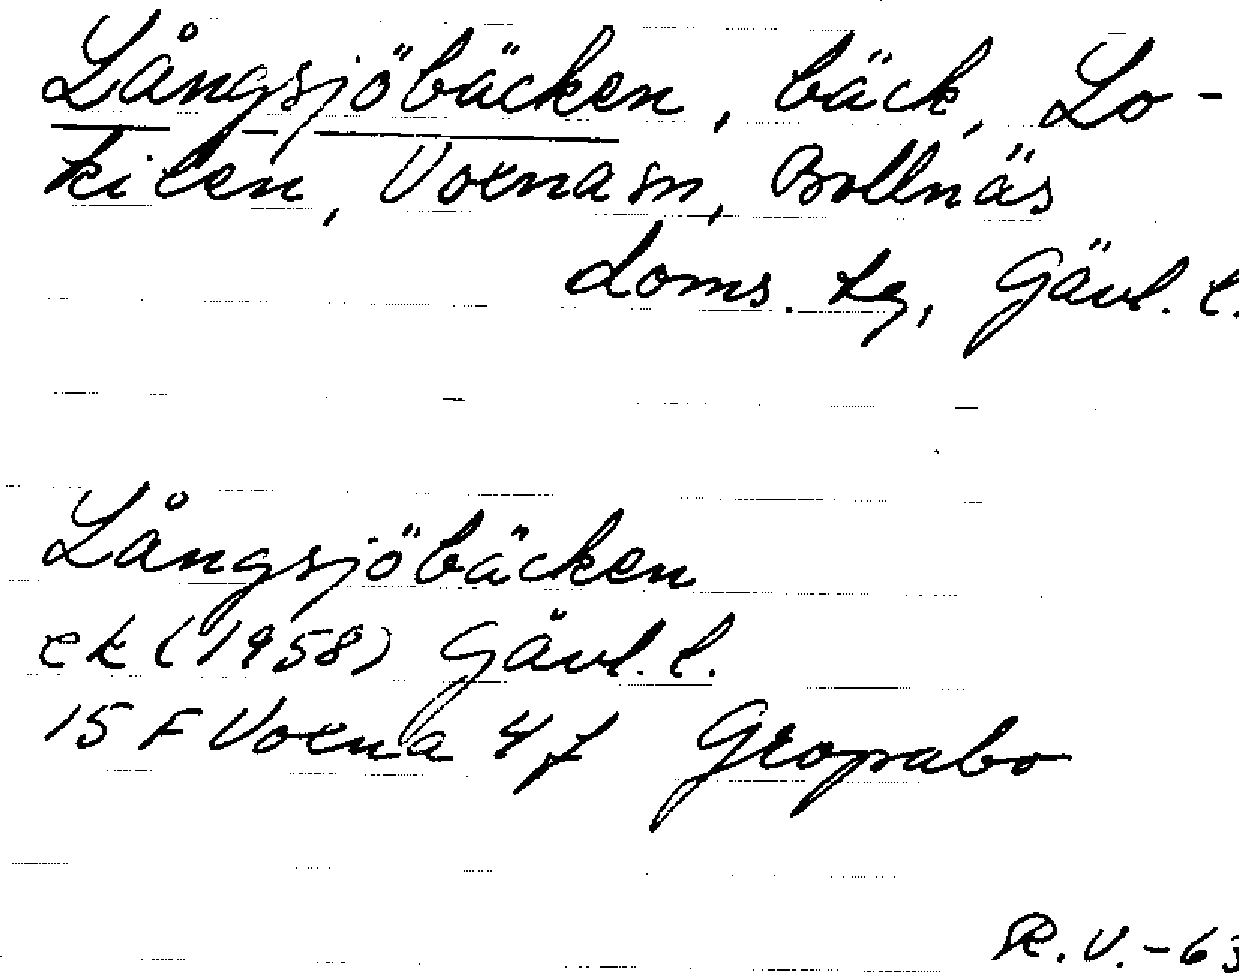 Långsjöbäcken, bäck, Lo-
kilen, Voxna sn, Bollnäs
doms. tg, Gävl. l.
Långsjöbäcken
ek (1958) Gävl. l.
15 F Voxna 4 f Gropabo
R.V.-63